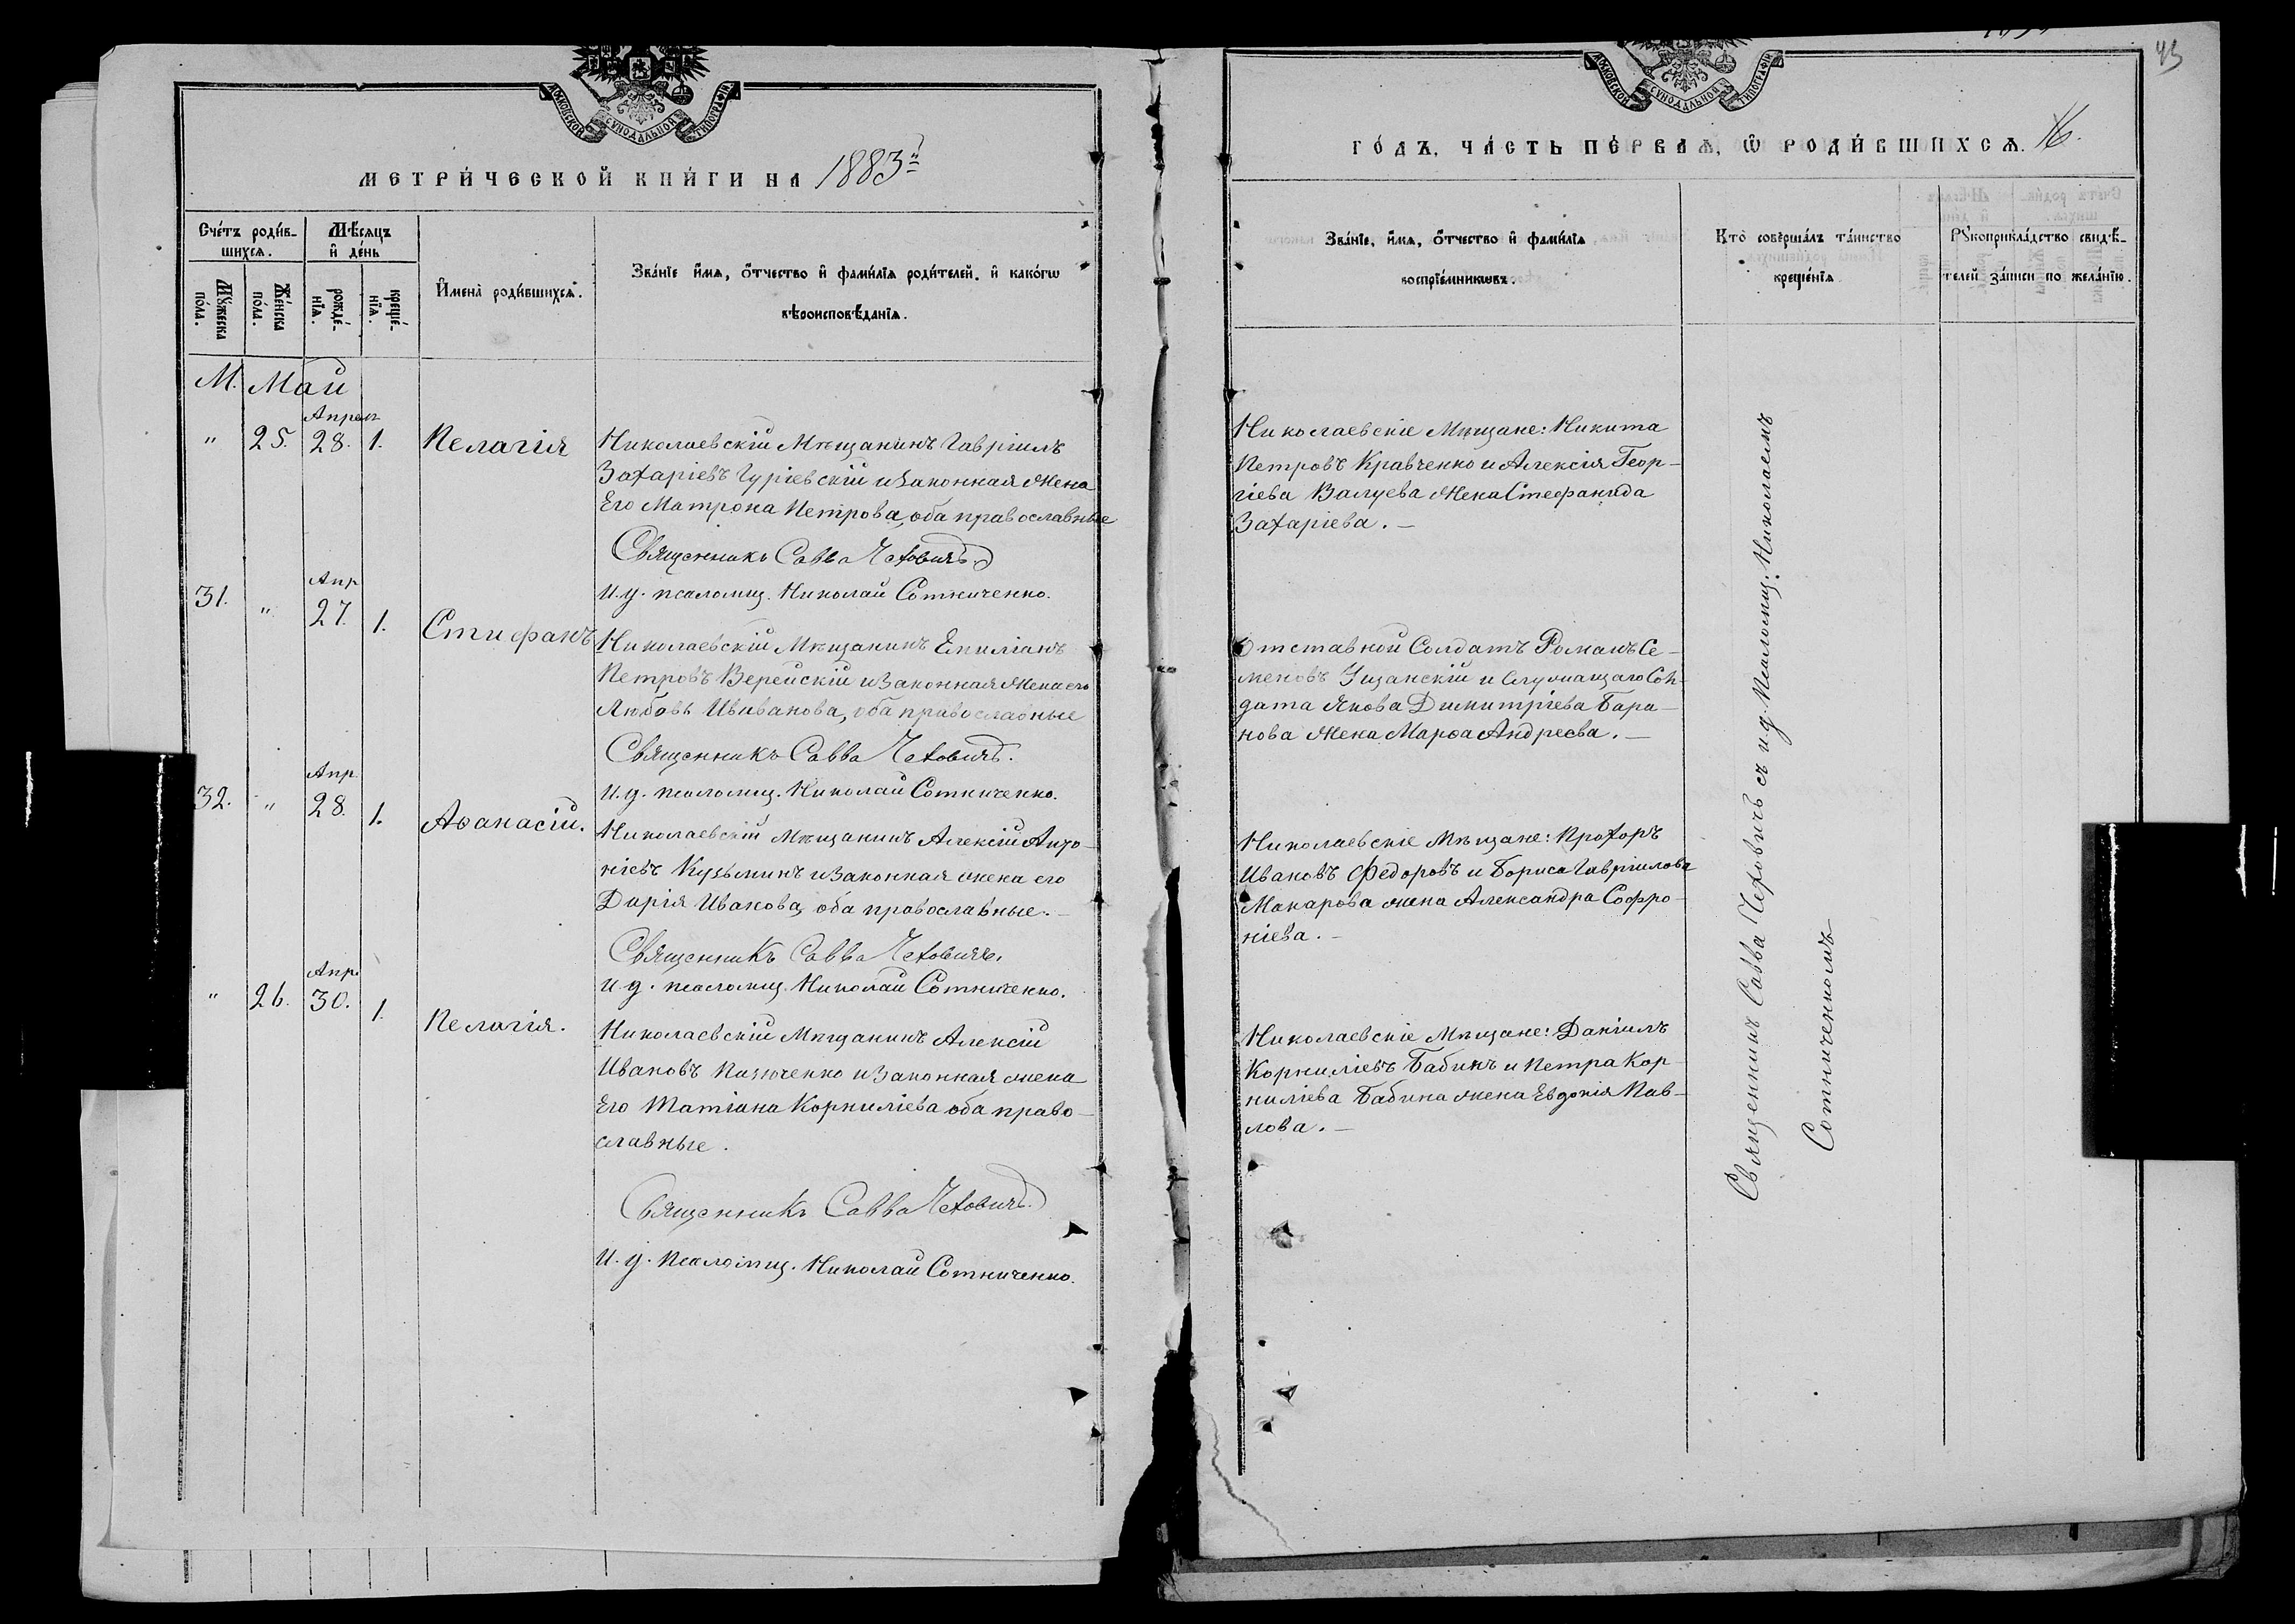 МОСКОВСКОЙ СѴНОДАЛЬНОЙ ТИПОГРАФІИ
МЕТРИ́ЧЕСКОЙ КНИ́ГИ НА 1883й
Сче́тъ роди́в-
шихсѧ.
Мѣ́сѧцъ
и҆ де́нь
Мꙋ́жеска
по́ла.
Же́нска
по́ла.
рожде́-
нїѧ.
креще́-
нїѧ.
И҆мена̀ роди́вшихсѧ.
Зва́нїе и҆́мѧ, ѻ҆́тчество и҆ фами́лїѧ роди́телей, и҆ како́гѡ
вѣроисповѣ́данїѧ.
М. Май
Апрел
" 25. 28. 1. Пелагія
Николаевскій Мѣщанинъ Гавріилъ
Захаріевъ Гуріевскій и Законная Жена
Его Матрона Петрова, оба православные
Священникъ Савва Чеховичъ.
И. д. псаломщ. Николай Сотниченко.
Апр
31. " 27. 1. Стифанъ
Николаевскій Мѣщанинъ Емиліанъ
Петровъ Верейскій и Законная Жена его
Любовь Ививанова, оба православные
Священникъ Савва Чеховичъ.
И. д. псаломщ. Николай Сотниченко.
Апр
32. " 28. 1. Аѳанасій.
Николаевскій Мѣщанинъ Алексій Анто-
ніевъ Кузьминъ и Законная жена его
Дарія Иванова, оба православные.-
Священникъ Савва Чеховичъ.
И. д. псаломщ. Николай Сотниченко.
Апр.
" 26. 30. 1. Пелагія.
Николаевскій Мѣщанинъ Алексій
Ивановъ и Законная жена
Его Татіана Корниліева оба право-
славные.
Священникъ Савва Чеховичъ.
И. д. Псаломщ. Николай Сотниченко.
43
МОСКОВСКОЙ СѴНОДАЛЬНОЙ ТИПОГРАФІИ
ГО́ДЪ, ЧА́СТЬ ПЕ́РВАѦ, Ѡ҆ РОДИ́ВШИХСѦ. 16.
Зва́нїе, и҆́мѧ, ѻ҆́тчество и҆ фами́лїѧ
воспрїе́мникѡвъ.
Кто̀ соверша́лъ та́инство
креще́нїѧ.
Рꙋкоприкла́дство свидѣ́-
телей за́писи по жела́нїю.
Николаевскіе Мѣщане: Никита
Петровъ Кравченко и Алексія Геор-
гіева Валуева Жена Стефанида
Захаріева.-
Отставной Солдатъ Романъ Се-
меновъ и Служащаго Сол-
дата Якова Димитріева Бара-
нова Жена Марѳа Андреева.-
Николаевскіе Мѣщане: Прохоръ
Ивановъ Федоровъ и Бориса Гавріилова
Макарова жена Александра Софро-
ніева.-
Николаевскіе Мѣщане: Даніилъ
Корниліевъ Бабинъ и Петра Кор-
ниліева Бабина жена Евдокія Пав-
лова.-
Священникъ Савва Чеховичъ съ и. д. Псаломщ. Николаемъ
Сотниченкомъ